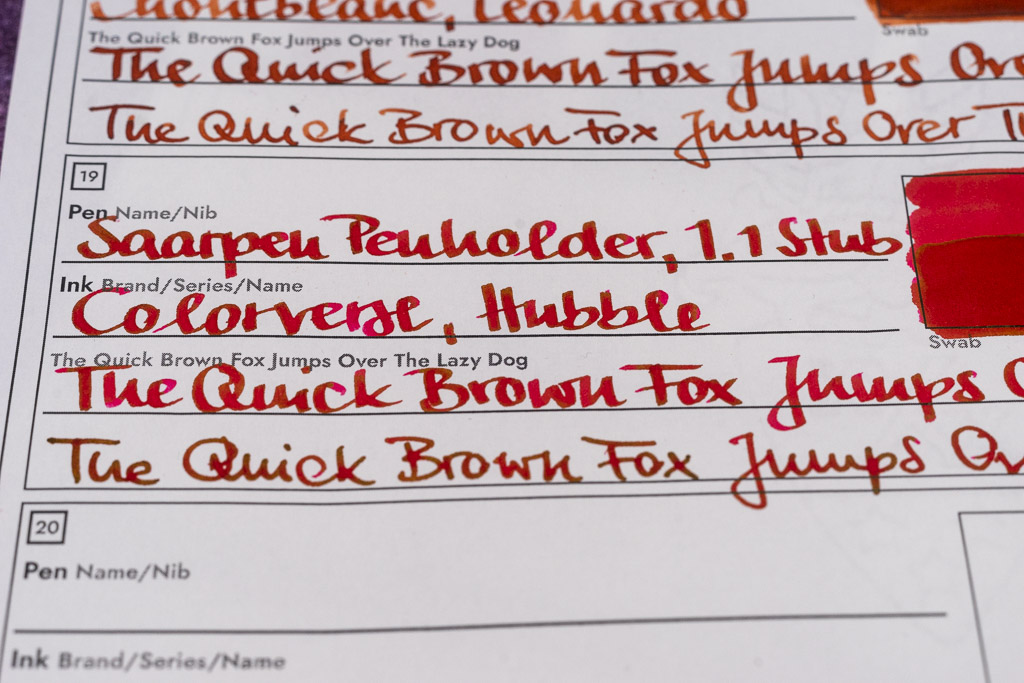 Montblanc, Leonardo
Swab
The Quick Brown Fox Jumps Over The Lazy Dog
The Quick Brown Fox Jumps Ove
The Quick Brown Fox Jumps Over Th
19
Pen Name/Nib
Saarpen Penholder, 1.1 Stub
Ink Brand/Series/Name
Colorverse, Hubble
Swab
The Quick Brown Fox Jumps Over The Lazy Dog
The Quick Brown Fox Jumps O
The Quick Brown Fox Jumps Ov
20
Pen Name/Nib
Ink Brand/Series/Name